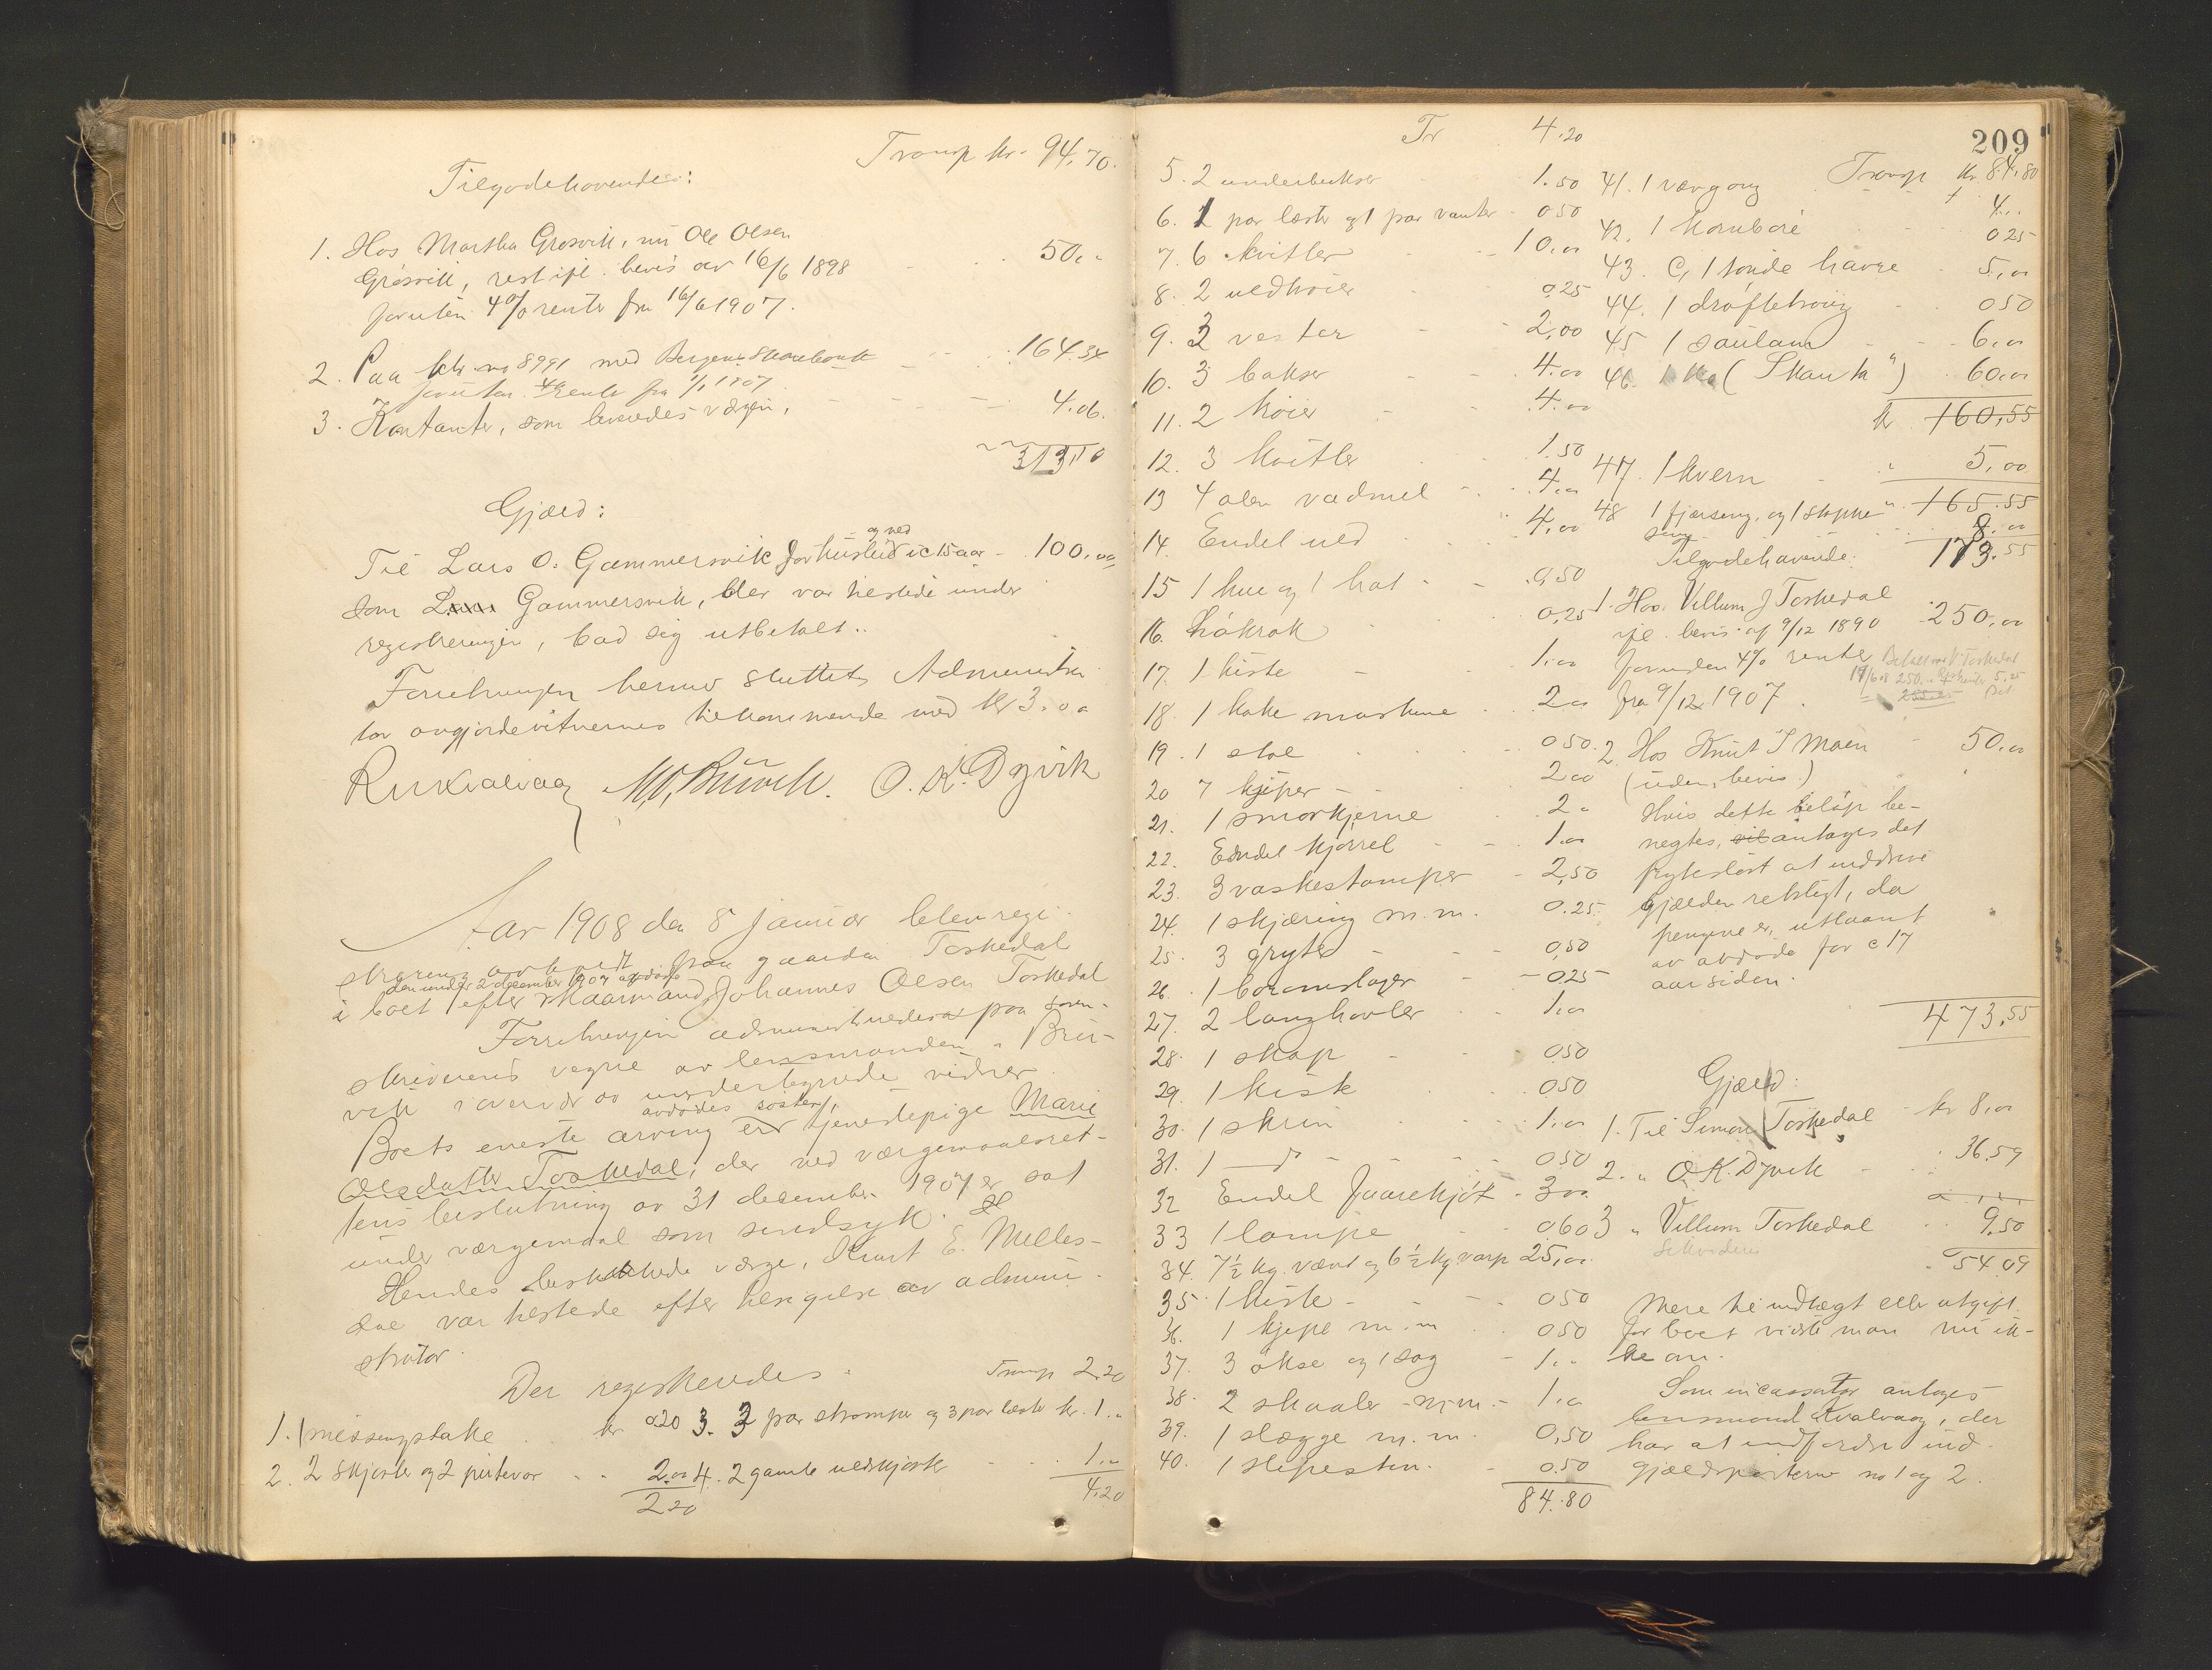 Transp kr. 94,70.
Tilgodehavender:
1. Hos Martha Grøsvik, nu Ole Olsen
Grøsvik, rest ifl. bevis av 16/6 1898 50,"
foruten 4% rente fra 16/6 1907.
2. Paa bok no 8991 med Bergens Skarebank 164.34
foruten rente fra 1/1 1907
3. Kontanter, som beroedes værgen, 4.06.
313,10
Gjæld:
og ved
Til Lars O. Gammersvik for husleie i c 15 aar 100,00
som Gammersvik, der var tilstede under
registreringen, bad sig utbetalt.
Forretningen hermed sluttet. Administra
tor avgjorde vitnernes tilkommende med kr 3.00
R Kvalvaag M.O. Brüvik. O. K. Dyvik
Aar 1908 den 8 januar blev regi-
strering avholdt paa gaarden Toskedal
den under 2 december 1907 avdøde
i boet efter Skaarmand Johannes Olsen Toskedal
Forretningen administreredes paa soren-
skriverens vegne av lensmanden i Bru-
vik i overvær av undertegnede vidner.
avdødes søster,
Boets eneste arving er tjenestepige Marie
Olsdatter Toskedal, der ved værgemaalsret-
tens beslutning av 31 december 1907 er sat
under værgemaal som sindsyk.
Hendes beskikkede værge, Knut E. Melles-
dal var tilstede efter tilsigelse av admini-
strator.
Der registreredes:
Transp 2.20
1. 1 messingstake kr 0.20
3. 3 par strømper og 3 par læster kr. 1."
2. 2 skjorter og 2 2.00
4. 2 gamle uldskjorter 1."
2.20
4,20
209
Tr 4.20
5. 2 underbukser 1.50
6. 1 par læster og 1 par vanter 0 50
7. 6 kvitler 10.00
8. 2 uldtrøier 0.25
9. 3 vester 2,00
10. 3 bukser 4.00
11. 2 trøier 4.00
12. 3 kvitler 1.50
13 4 alen vadmel 4.00
14. Endel uld 4,00
15 1 hue og 1 hat 0,50
16. 0,25
17. 1 kiste 1.00
18. 1 kakemaskine 2 00
19. 1 stol 0 50
20 7 kjiper 2 00
21. 1 smørkjerne 2 "
22. Endel kjørrel 1.00
23. 3 vaskestamper 2,50
24. 1 skjæring m.m. 0.25
25. 3 gryter 0,50
26. 1 0.25
27. 2 langhøvler 1.00
28. 1 skap 0.50
29. 1 kiste 0.50
30. 1 skrin 1.00
31. 1 — d° — 0.50
32 Endel faarekjøt 3 00
33 1 lampe 0.60
34. 7 1/2 kg. vævt og 6 1/2 kg varp 25,00
35. 1 kiste 0 50
36. 1 kjepe m.m 0 50
37. 3 økse og 1 sag 1.."
38. 2 skaaler m.m. 1.00
39. 1 slægge m.m. 0,50
40. 1 slipesten. 0.50
84.80
Transp kr 84,80
41. 1 vævgong 4..
42. 1 kornbøre 0 25
43. C, 1 tønde havre 5,00
44. 1 drøftetroug 0 50
45 1 saulam 6,00
46. 1 ko ("Skaut ") 60,00
kr 160,55
47. 1 kvern 5,00
165.55
48 1 fjærseng, og 1 stoppe-
seng 8.00
173.55
Tilgodehavende:
1. Hos Villum J Toskedal
ifl. bevis af 9/12 1890 250,00
foruden 4% rente
fra 9/12 1907.
2. Hos Knut I Moen 50,00
(uden bevis.)
Hvis dette beløp be-
negtes, antages det
frykesløst at inddrive
gjælden retsligt, da
pengene er utlaant
av avdøde for c 17
aar siden.
473,55
Gjæld:
1. Til Simon Toskedal kr 8,00
2. " O. K. Dyvik 36.59
3 " Villum Toskedal 9,50
54.09
Mere til indtægt eller utgift
for boet vidste man nu ik-
ke om.
Som incassator antages
lensmand Kvalvaag, der
har at indfordre tilgodehavende
gjældsposterne no 1 og 2.